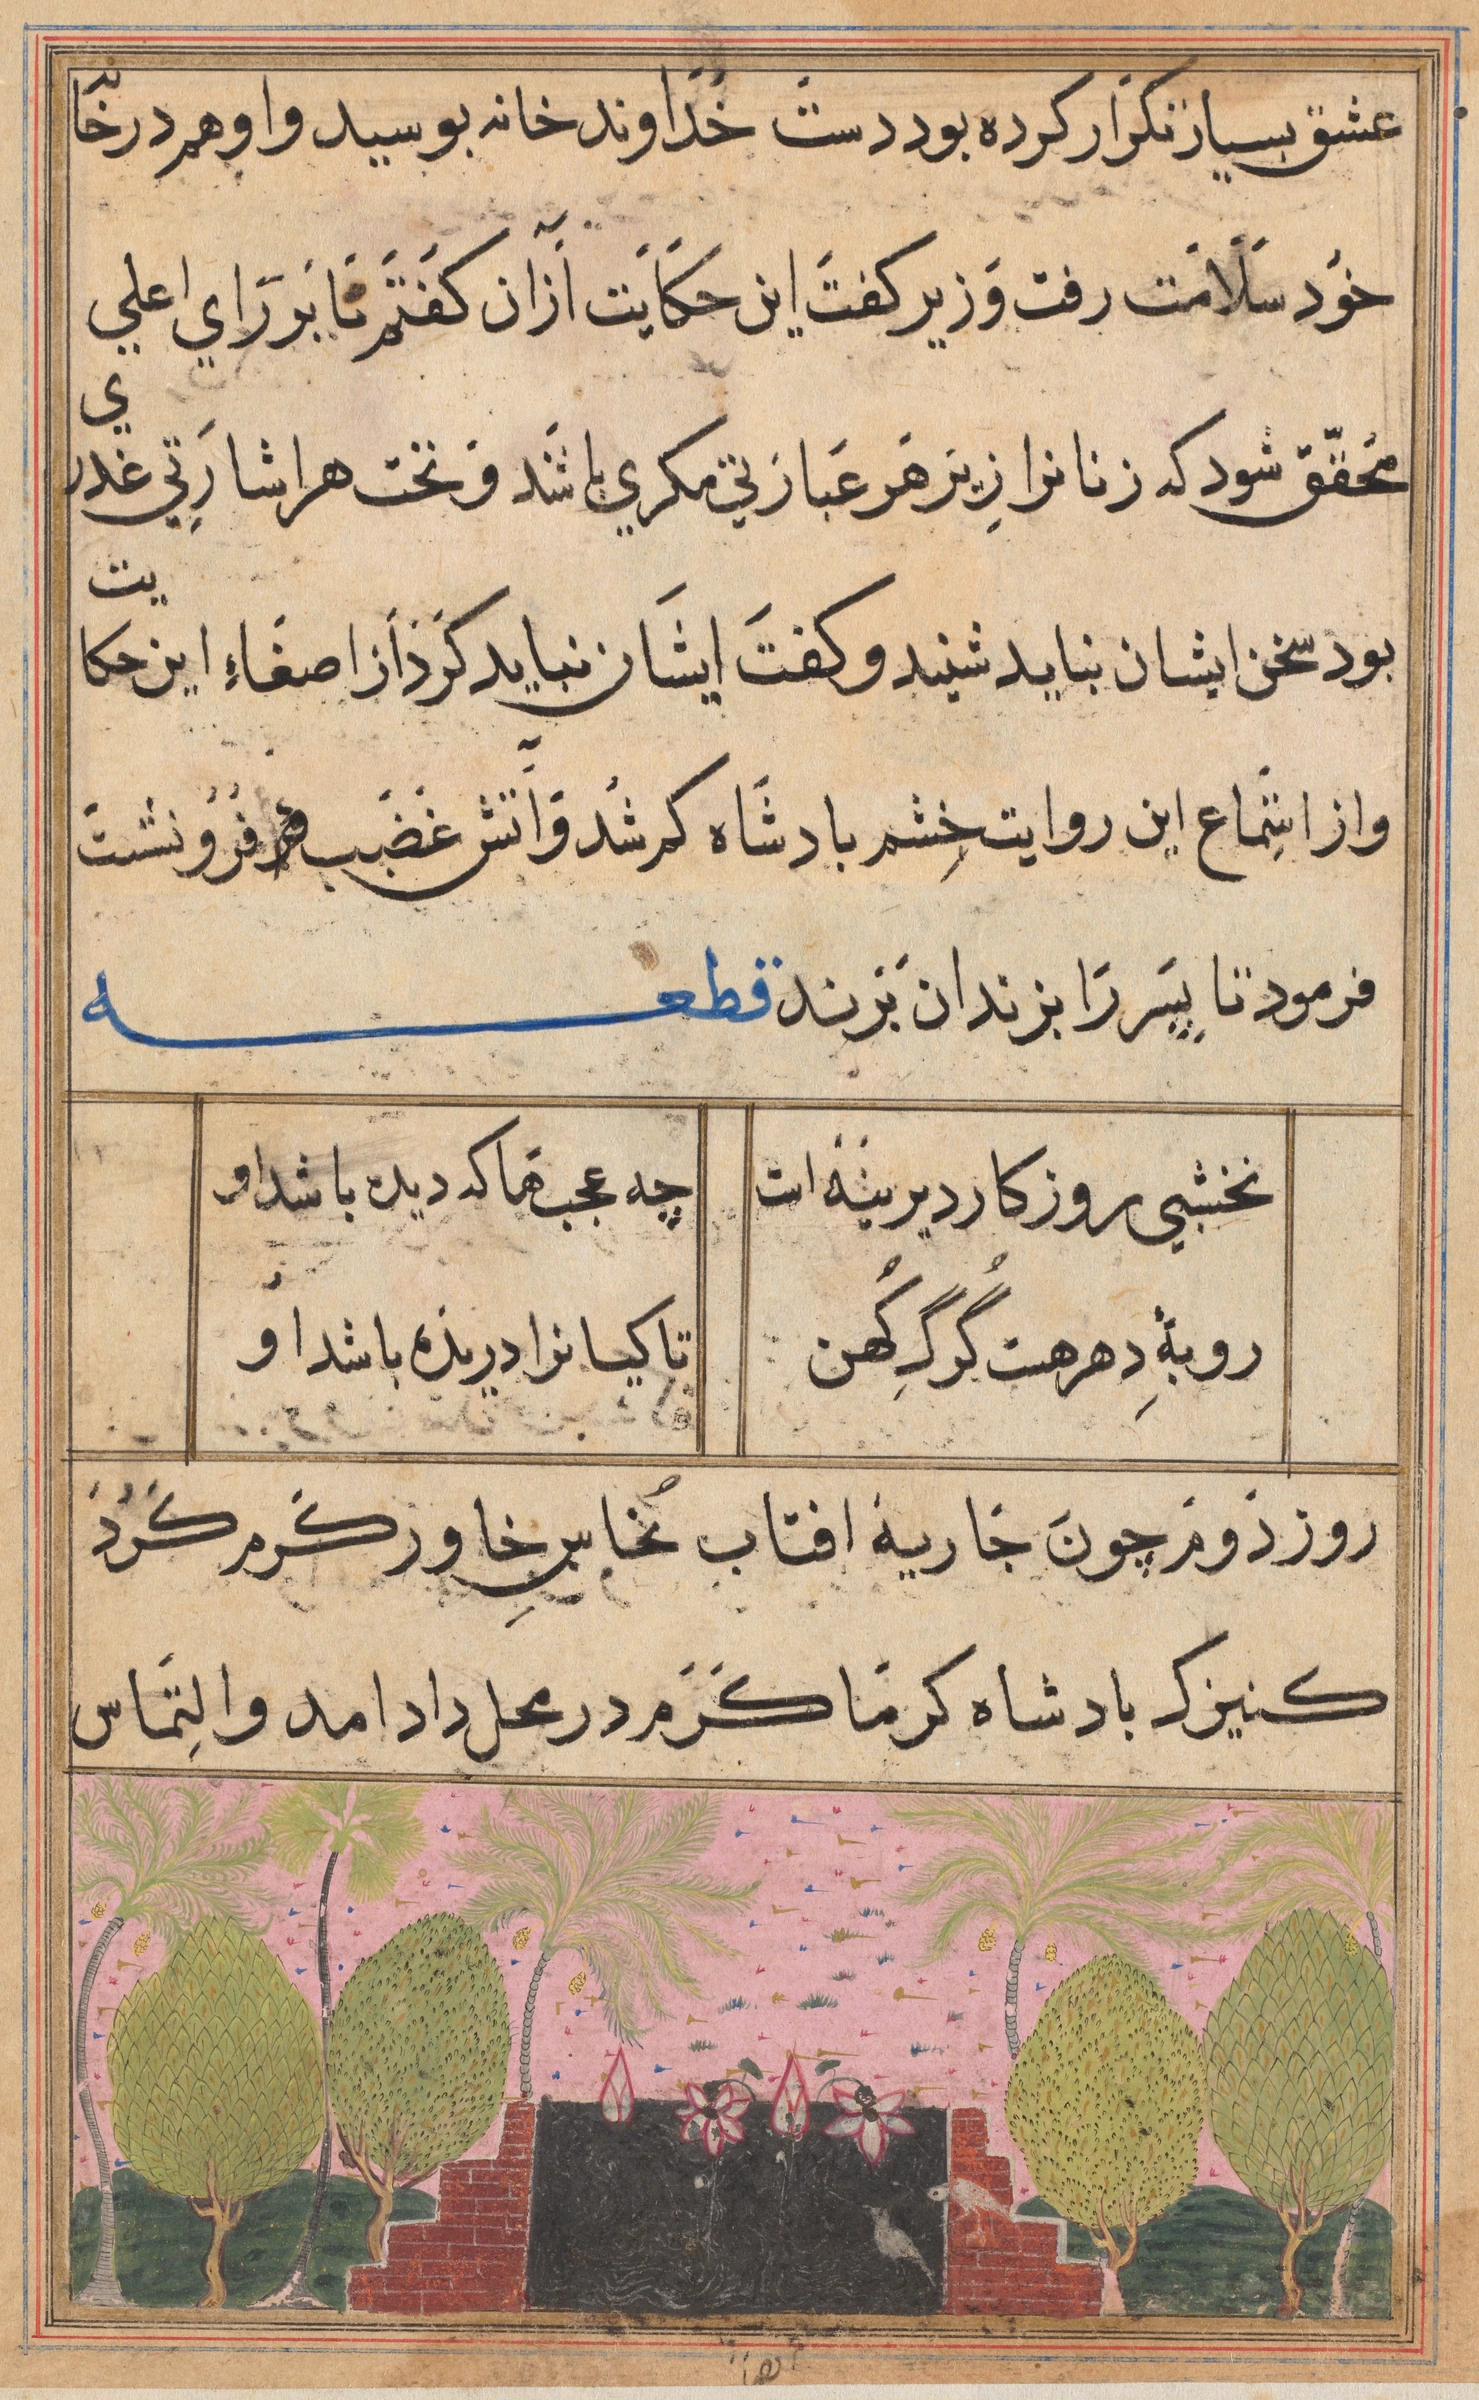 عشق بسیار تکرار کرده بود دست خداوند خانه بوسید و او هم در خا
خود سلامت رفت وزیر کفت این حکایت از ان کفتم تا بر رای اعلی
محقق شود که زنانرا زیر هر عبارتی مکری باشند و تحت هر اشارتی غدری
بود سخن ایشان نباید شنید و کفت ایشان نباید کرد از اصغاء این حکایت
و از استماع این روایت خشم بادشاه کم شد و آتش غضب هم فرو نشست
فرمود تا پسر را بزندان برند قطعه
نخشبی روزکار دیرینه است
چه عجبها که دیده باشد او
روبۀ دهر هست گرگ کهن
تا کیانرا دریده باشد او
روز دوم چون جاریۀ افتاب نخاس خاور گرم کرد
کنیزک بادشاه کرماگرم در محل داد امد و التماس